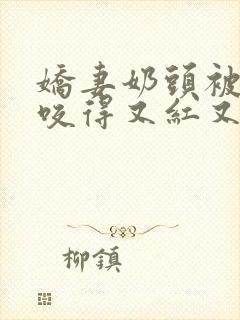 嬌妻奶頭被
咬得又紅又
柳鎮